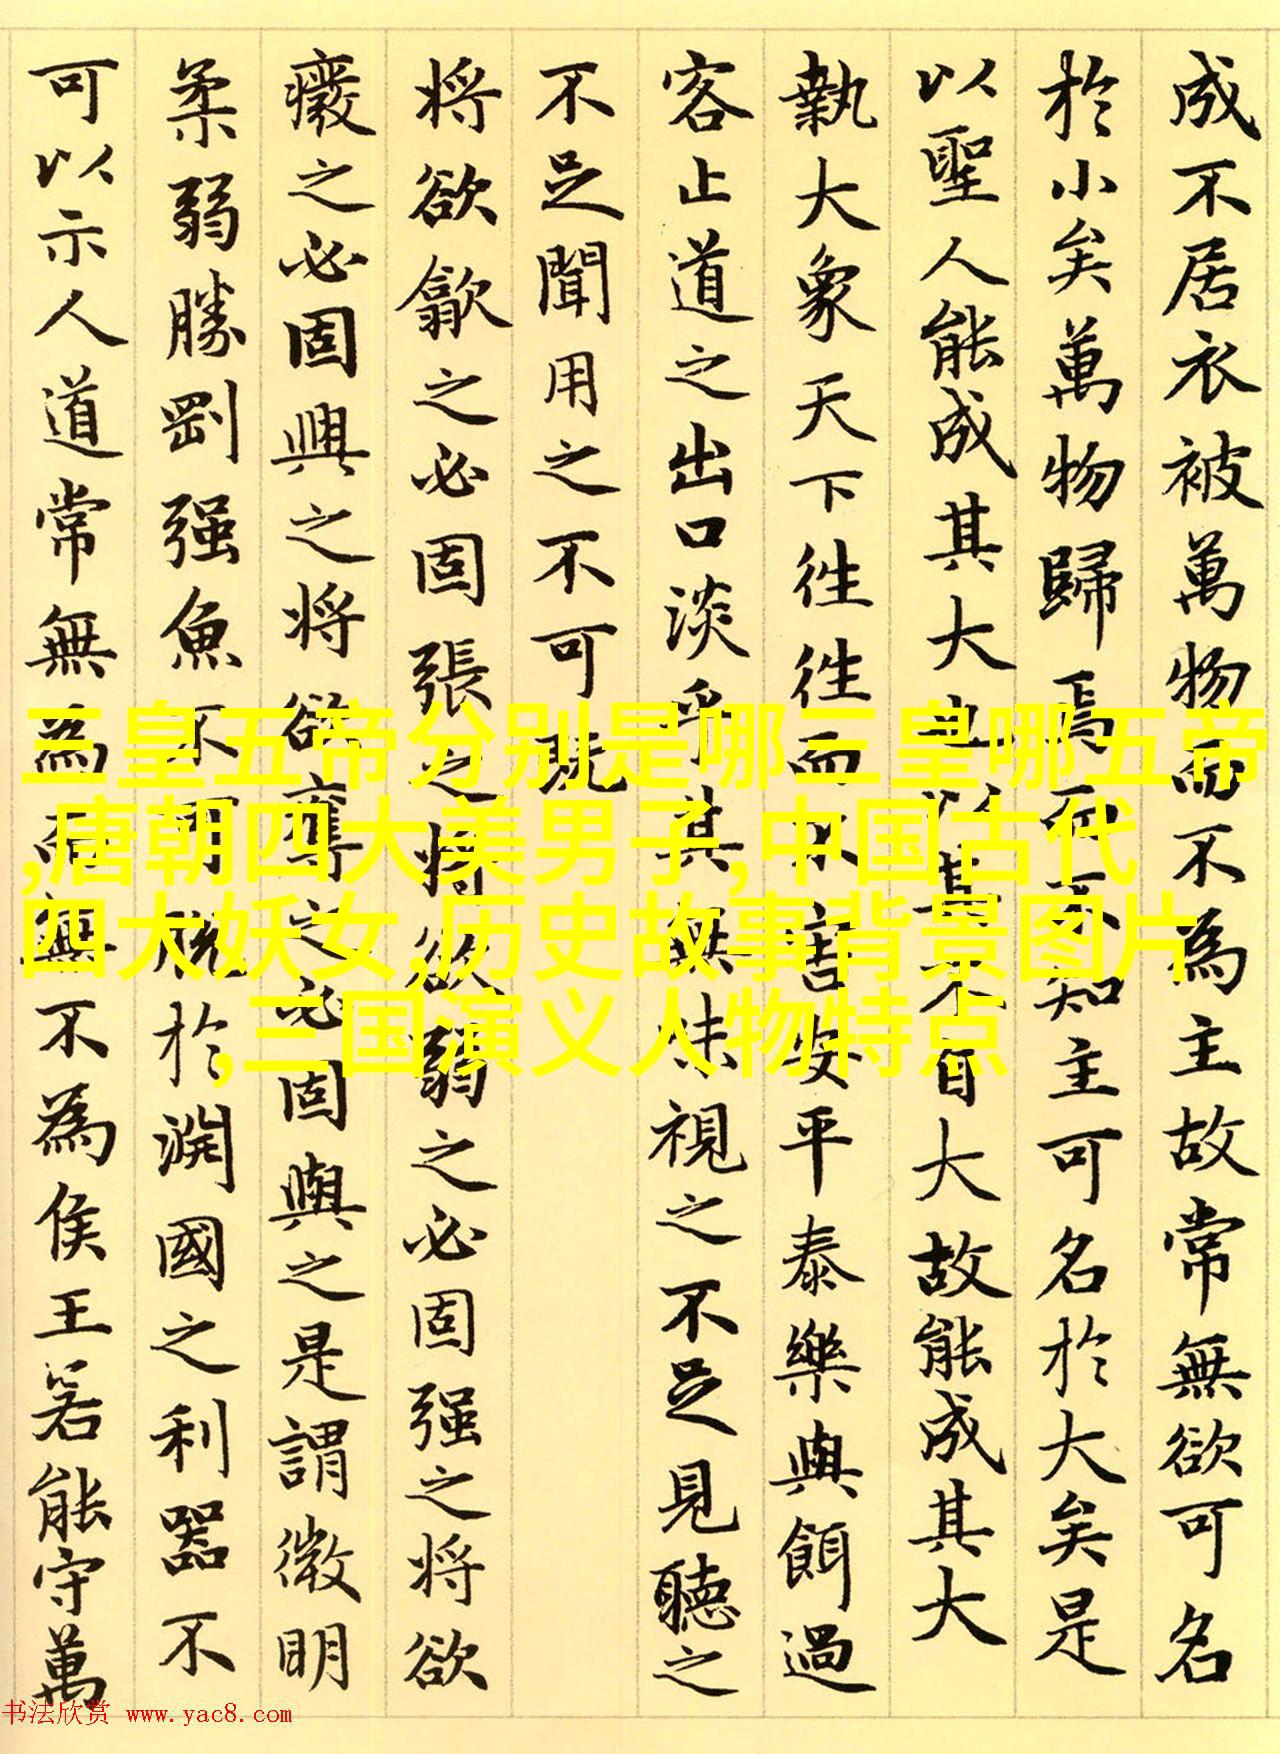 成不居衣被萬物而不為主故常無欲可名
於小矣萬物歸焉而不知主可名於大矣是
以聖人能成其大也以其不自大故能成其大
執大象天下往往而不害安平泰樂與餌過
客止道之出口淡乎其無味視之不足見聽之
不足聞用之不可既
将欲歙之必固張之将欲弱之必固强之将欲
癈之必固興之将欲奪之必固與之是謂微明
柔弱勝剛强魚不可脱於淵國之利器不
可以示人道常無為而無不為侯王若能守萬
三皇五帝分别是哪三皇哪五帝
,唐朝四大美男子,中国古代
四大妖女,历史故事背景图片
,三国演义人物特点
书法欣赏 www.yac8.com